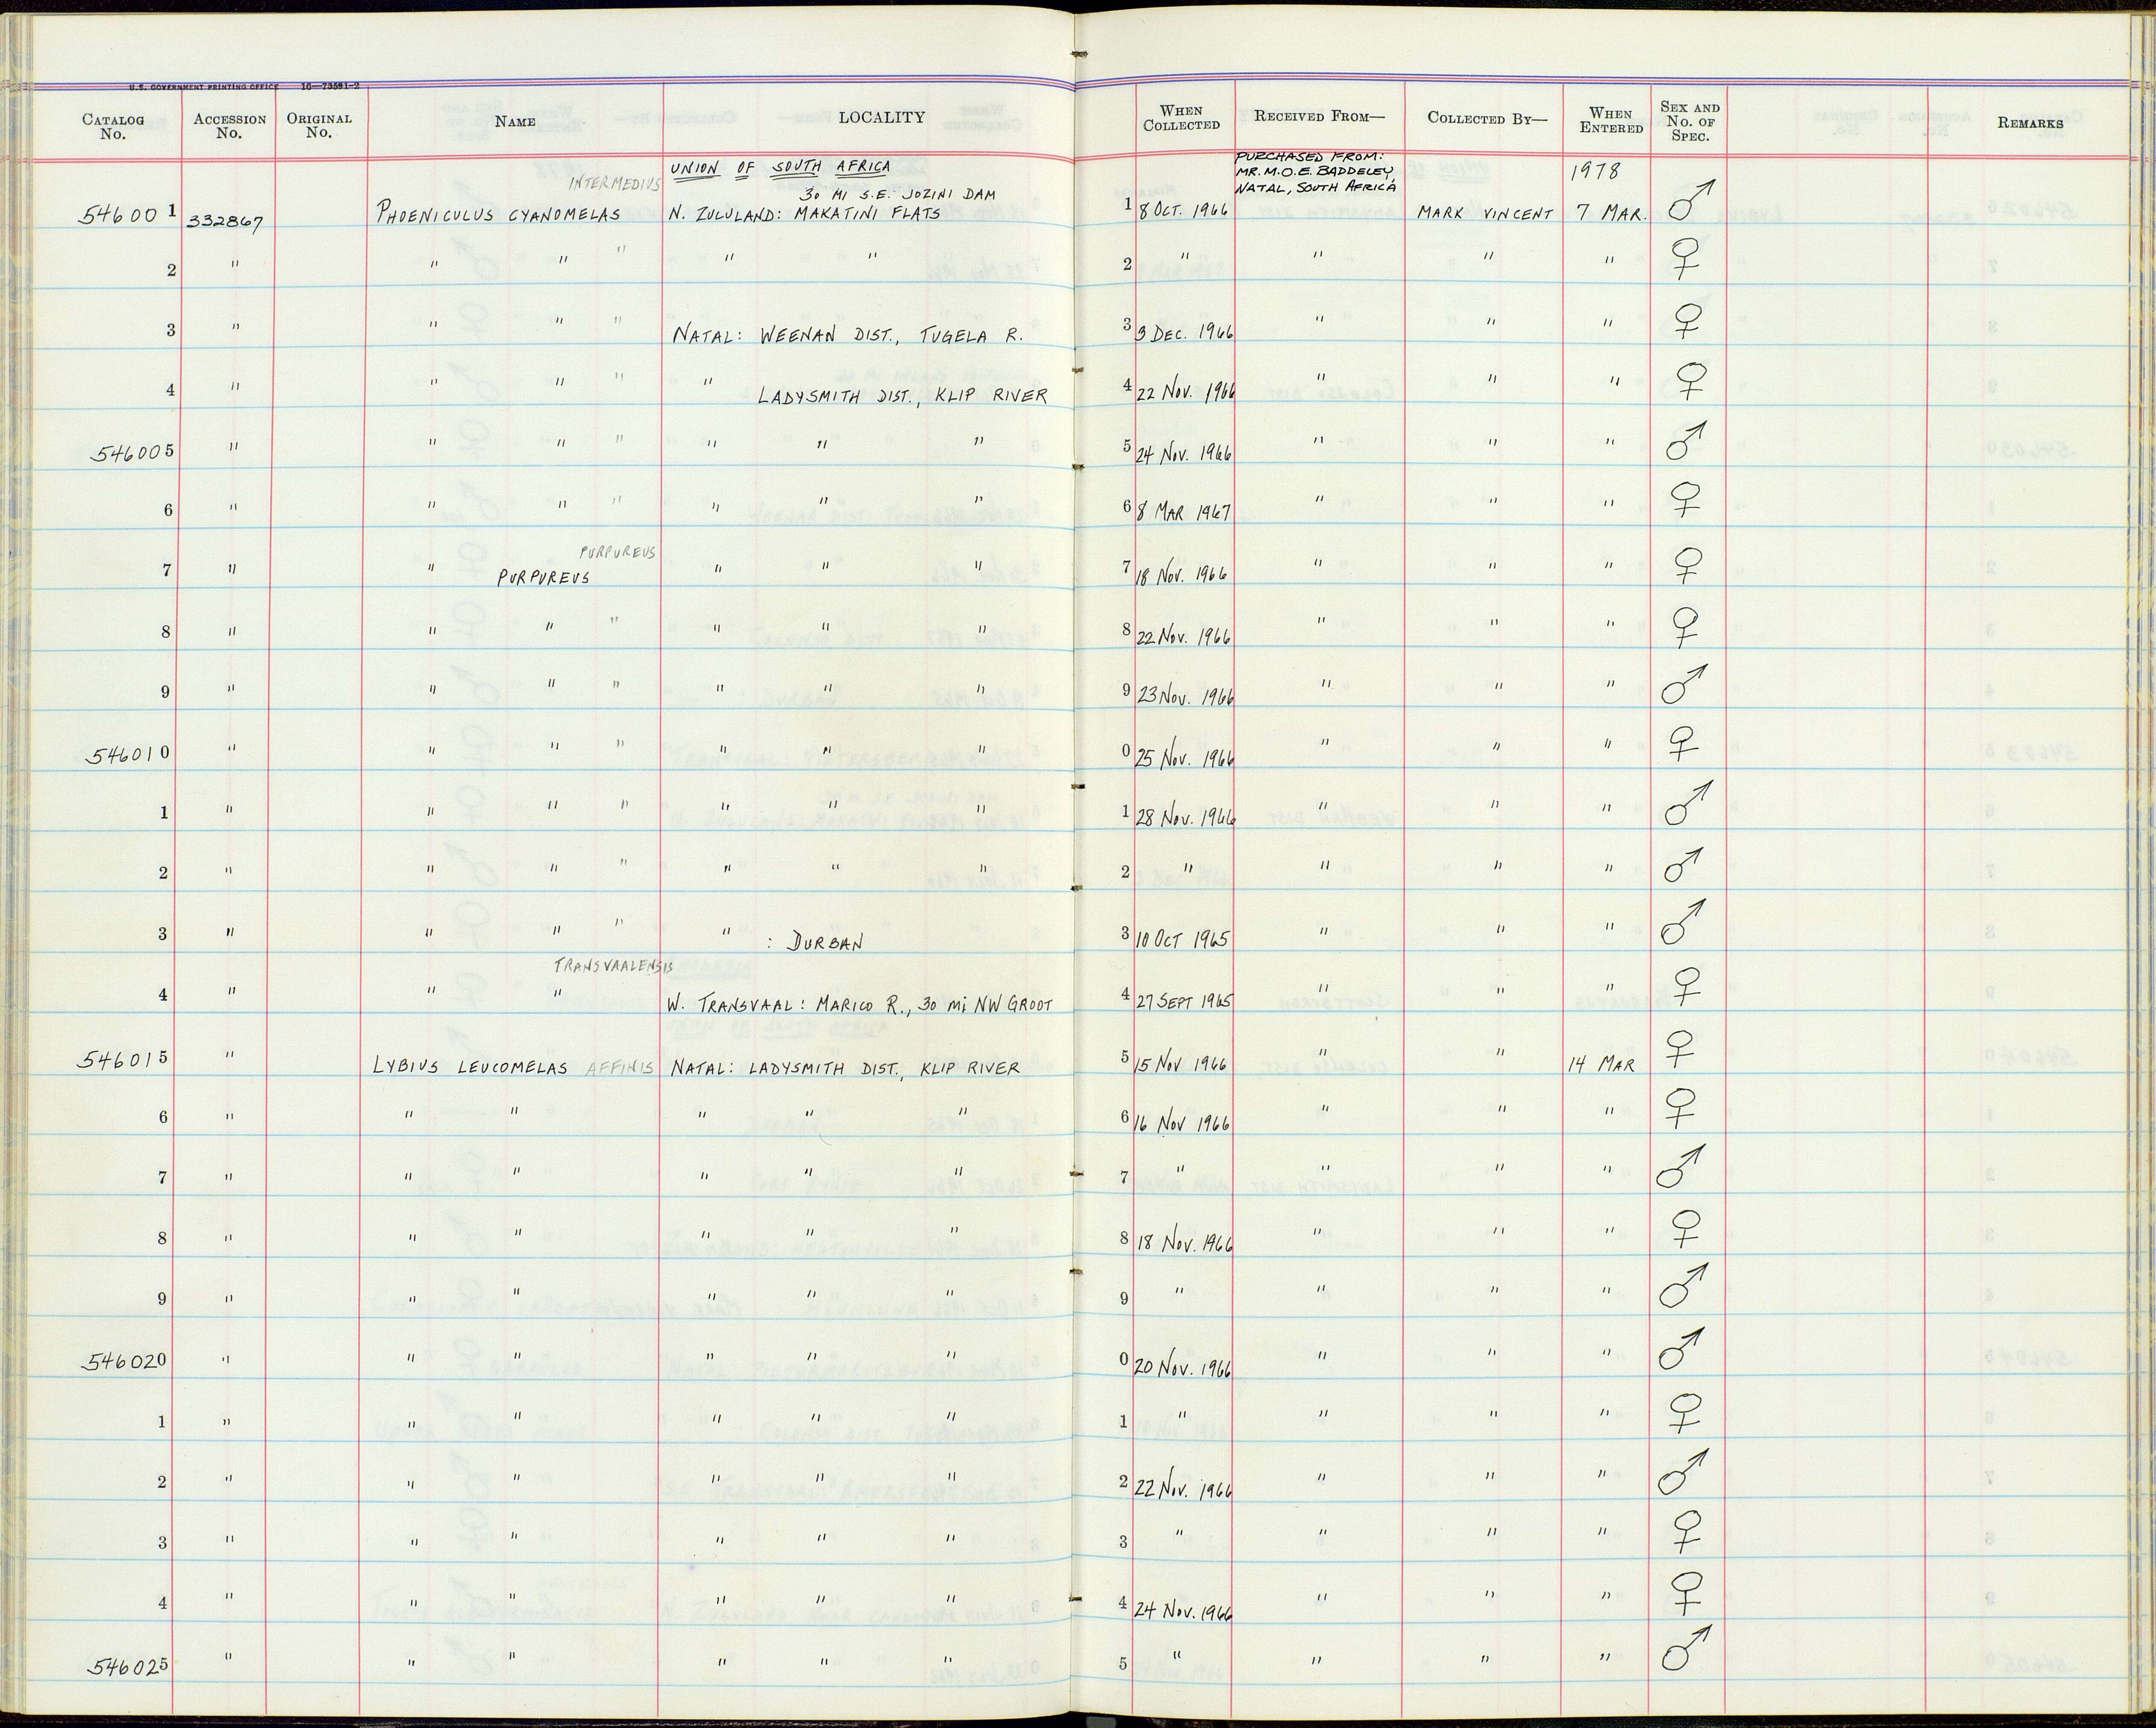 U.S. GOVERNMENT PRINTING OFFICE 16—73591-2
CATALOG No. ACCESSION No. ORIGINAL No. NAME LOCALITY WHEN COLLECTED RECEIVED FROM— COLLECTED BY— WHEN ENTERED SEX AND No. OF SPEC. REMARKS
UNION OF SOUTH AFRICA PURCHASED FROM: MR. M.O.E. BADDELEY, NATAL, SOUTH AFRICA 1978
INTERMEDIUS 30 MI S.E. JOZINI DAM
546001 332867 PHOENICULUS CYANOMELAS N. ZULULAND: MAKATINI FLATS 1 8 OCT. 1966 MARK VINCENT 7 MAR. ♂
2 " " " " " " 2 " " " " ♀
3 " " " " NATAL: WEENAN DIST., TUGELA R. 3 3 DEC. 1966 " " " ♀
4 " " " " " LADYSMITH DIST., KLIP RIVER 4 22 NOV. 1966 " " " ♀
546005 " " " " " " " 5 24 NOV. 1966 " " " ♂
6 " " " " " " " 6 8 MAR 1967 " " " ♀
PURPUREUS
7 " " PURPUREUS " " " 7 18 NOV. 1966 " " " ♀
8 " " " " " " " 8 22 NOV. 1966 " " " ♀
9 " " " " " " " 9 23 NOV. 1966 " " " ♂
546010 " " " " " " " 0 25 NOV. 1966 " " " ♀
1 " " " " " " " 1 28 NOV. 1966 " " " ♂
2 " " " " " " " 2 " " " " ♂
3 " " " " " : DURBAN 3 10 OCT 1965 " " " ♂
TRANSVAALENSIS
4 " " " W. TRANSVAAL: MARICO R., 30 mi NW GROOT 4 27 SEPT 1965 " " " ♀
546015 " LYBIUS LEUCOMELAS AFFINIS NATAL: LADYSMITH DIST., KLIP RIVER 5 15 NOV 1966 " " 14 MAR ♀
6 " " " " " " 6 16 NOV 1966 " " " ♀
7 " " " " " " 7 " " " " ♂
8 " " " " " " 8 18 NOV. 1966 " " " ♀
9 " " " " " " 9 " " " " ♂
546020 " " " " " " 0 20 NOV. 1966 " " " ♂
1 " " " " " " 1 " " " " ♀
2 " " " " " " 2 22 NOV. 1966 " " " ♂
3 " " " " " " 3 " " " " ♀
4 " " " " " " 4 24 NOV. 1966 " " " ♀
546025 " " " " " " 5 " " " " ♂